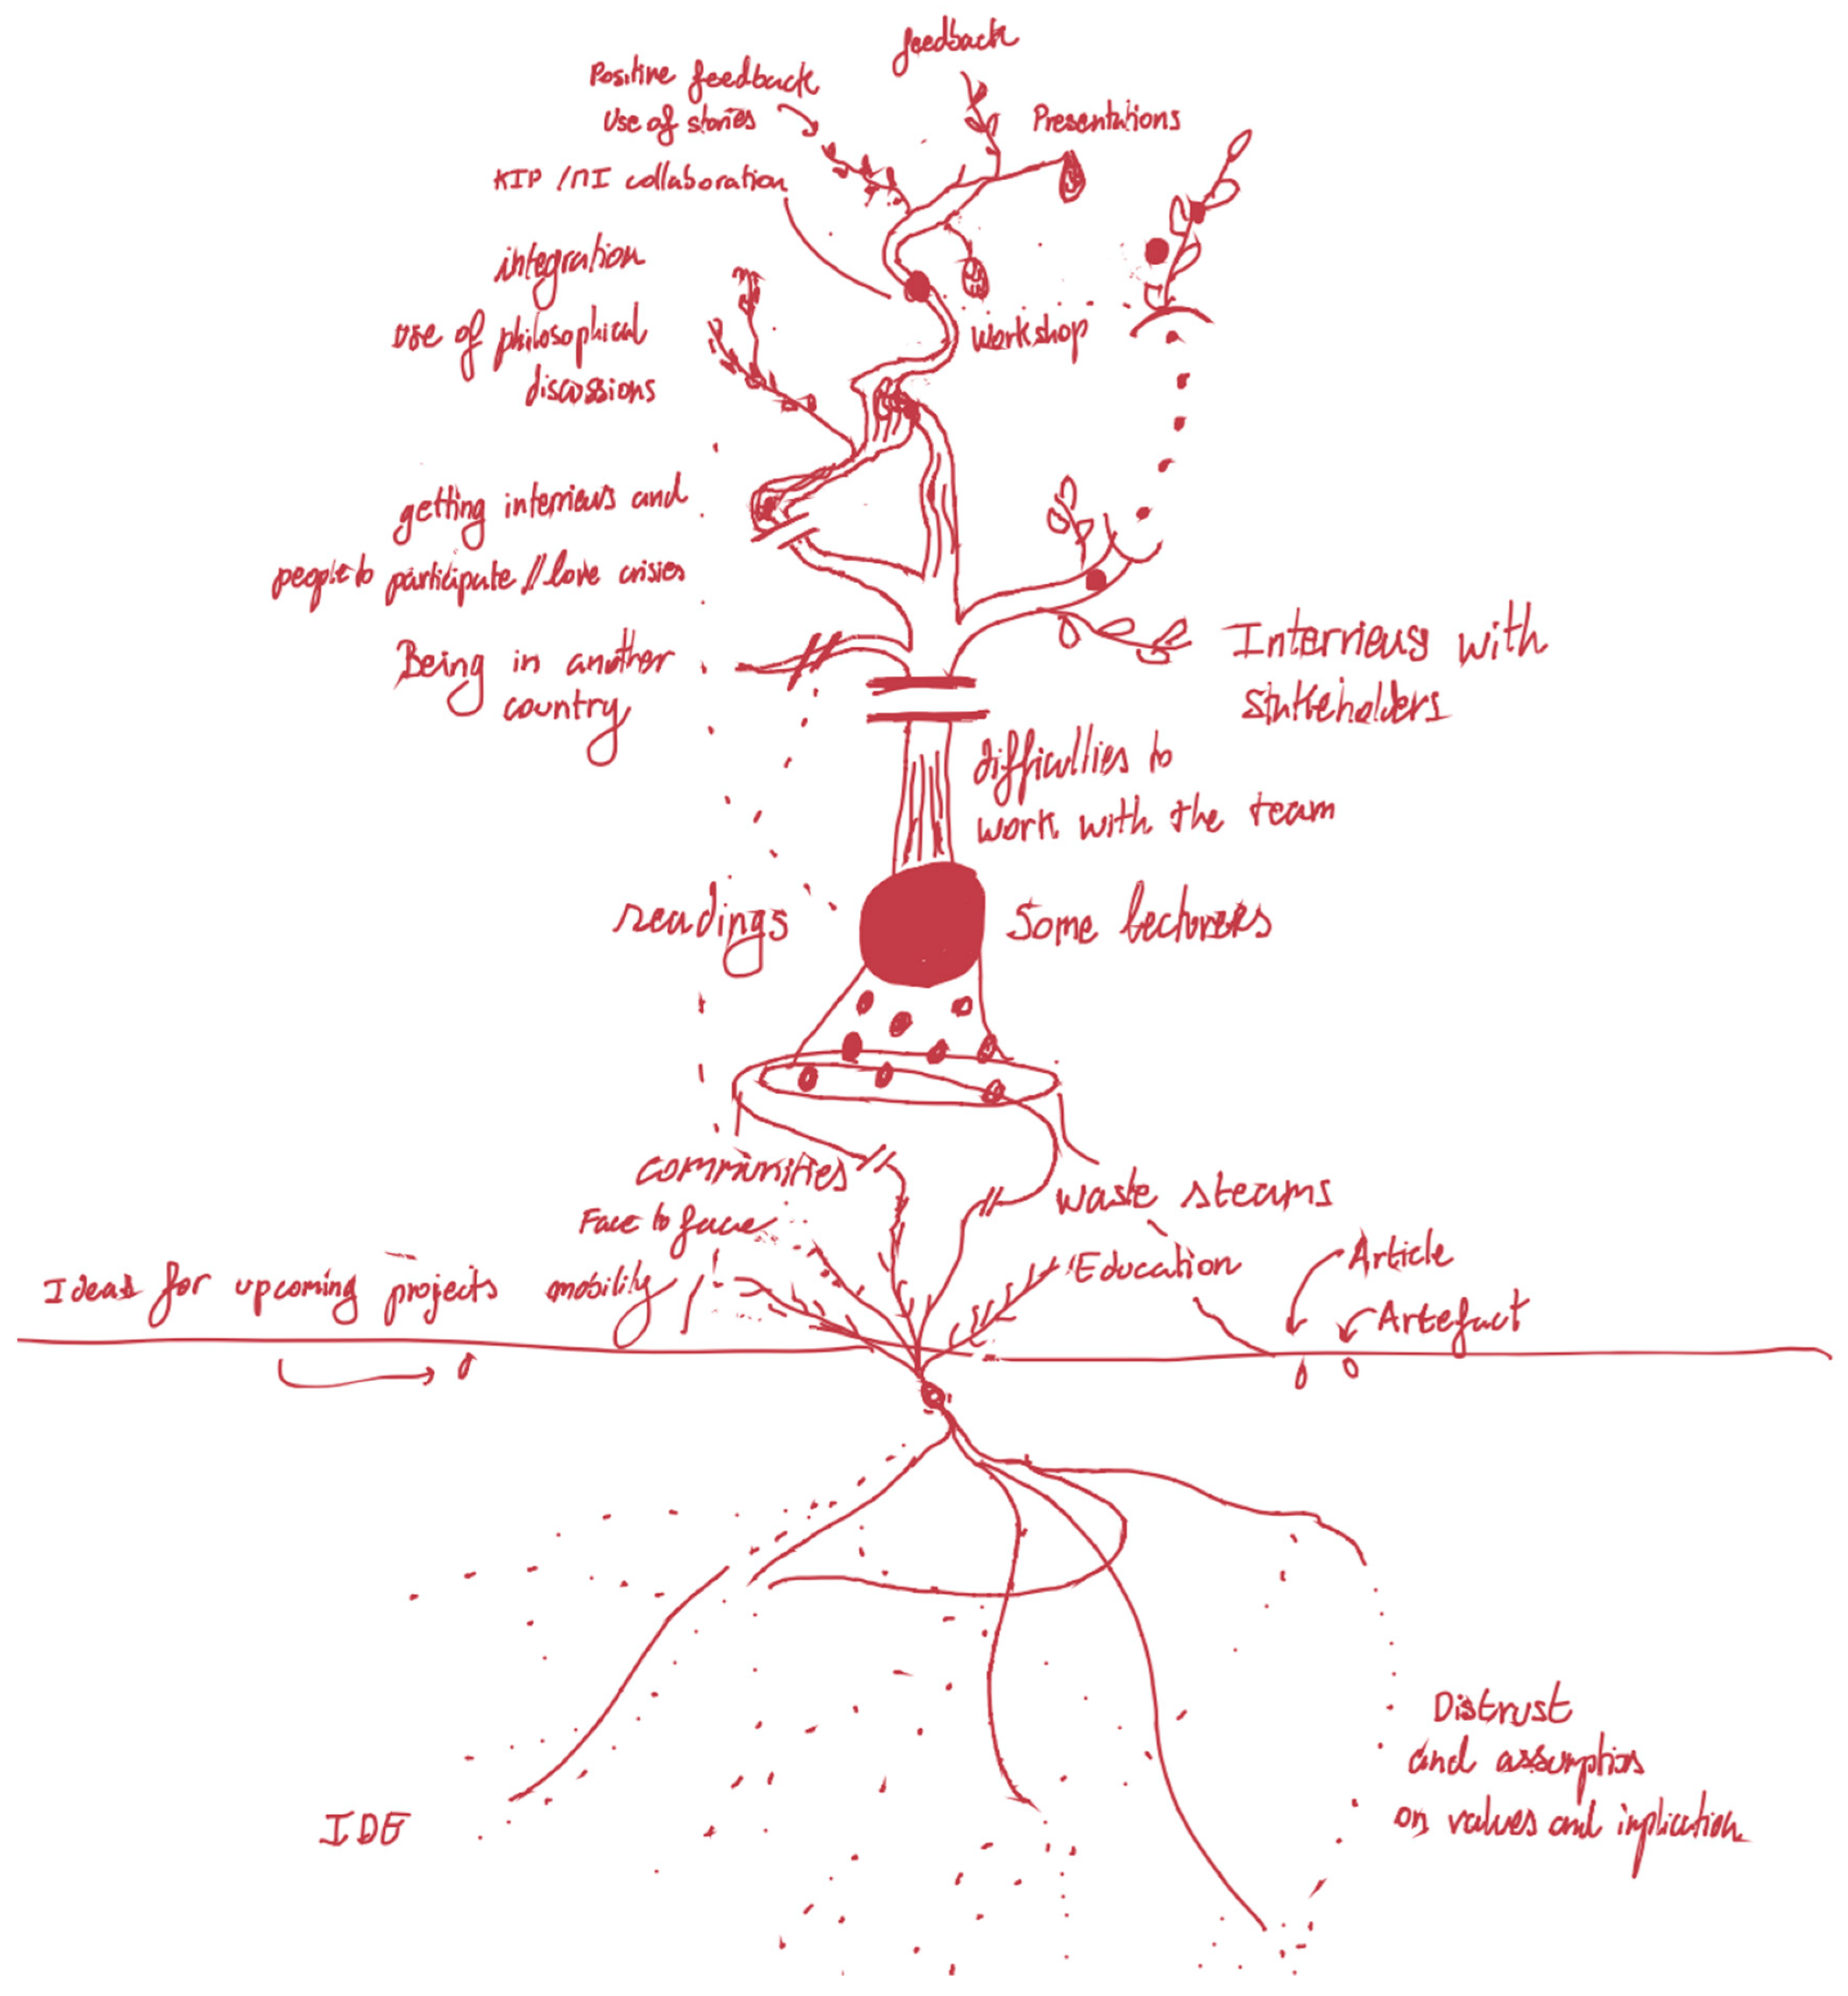 feedback
Positive feedback
Use of stories
Presentations
KIP / MI collaboration
integration
use of philosophical
discussions
workshop
getting interviews and
people to participate // love crisies
Being in another
country
Interviews with
stakeholders
difficullies to
work with the team
readings
Some lecturers
communities
waste steams
Face to face
mobility
Education
Article
Artefact
Ideas for upcoming projects
Distrust
and assumptions
on values and implication
IDE